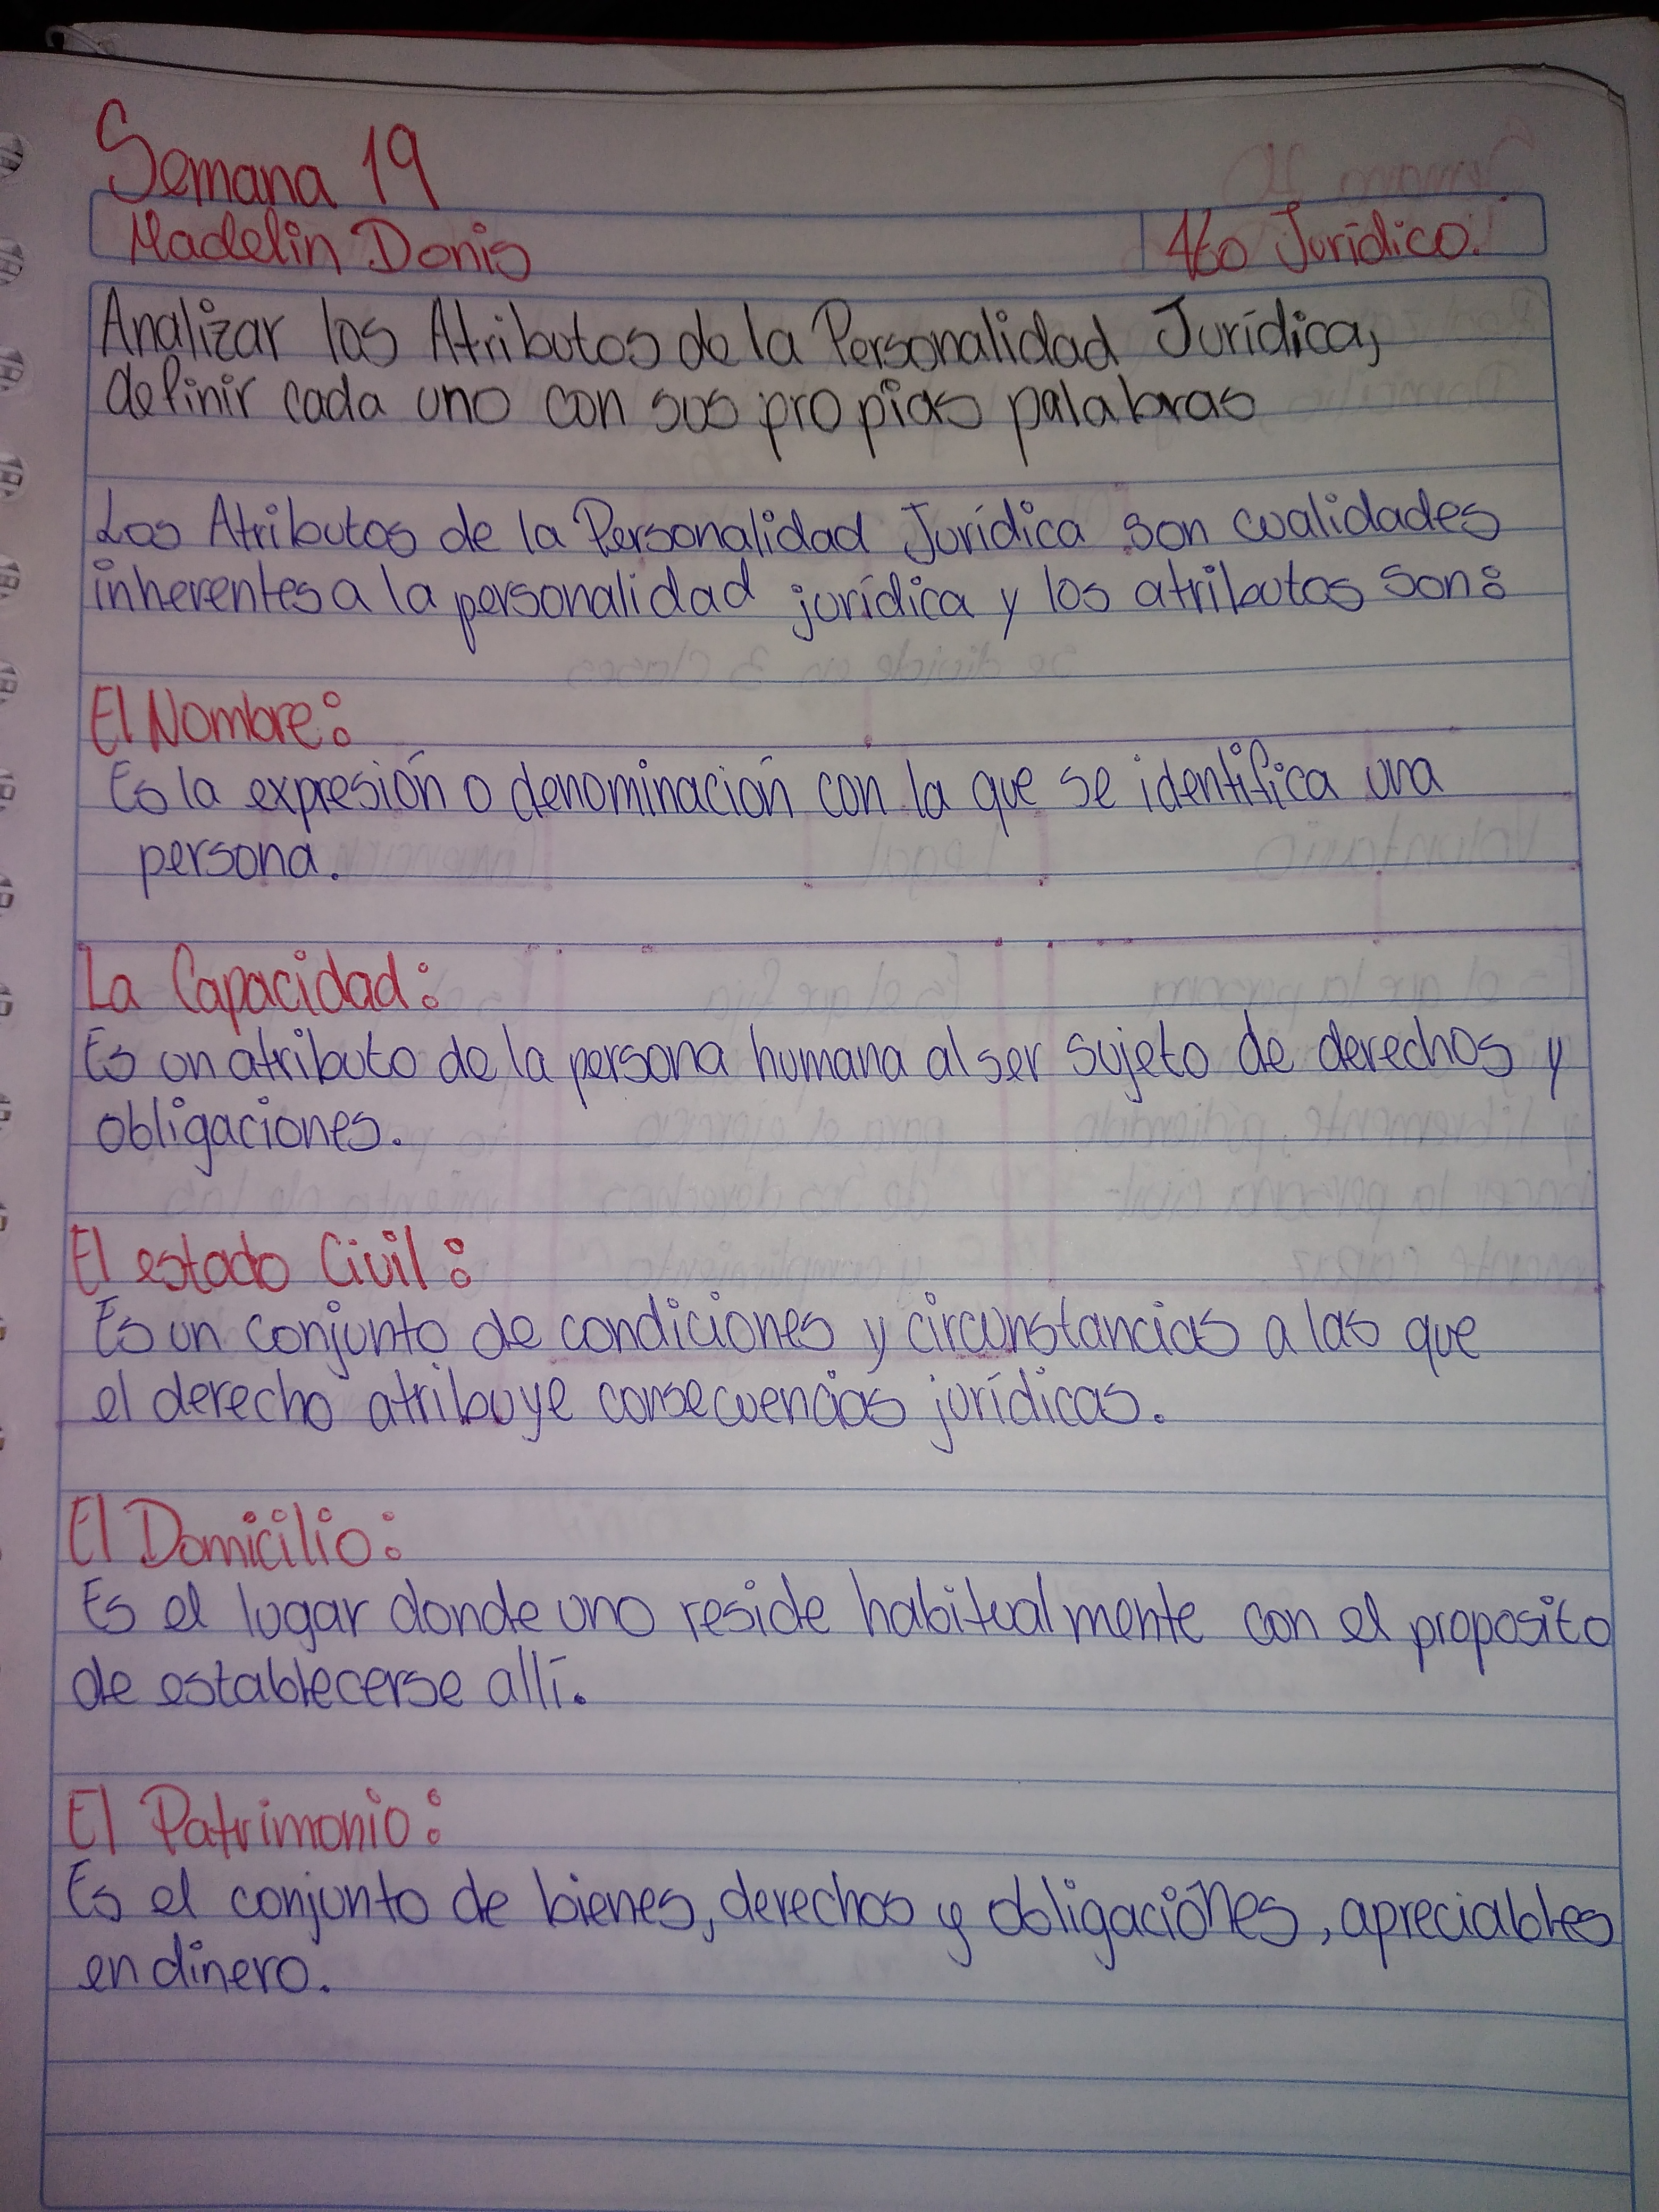 Semana 19
Madelin Donis 4to Jurídico.
Analizar los Atributos de la Personalidad Jurídica,
definir cada uno con sus propias palabras
Los Atributos de la Personalidad Jurídica son cualidades
inherentes a la personalidad jurídica y los atributos son:
El Nombre:
Es la expresión o denominación con la que se identifica una
persona.
La Capacidad:
Es un atributo de la persona humana al ser sujeto de derechos y
obligaciones.
El estado Civil:
Es un conjunto de condiciones y circunstancias a las que
el derecho atribuye consecuencias jurídicas.
El Domicilio:
Es el lugar donde uno reside habitualmente con el proposito
de establecerse allí.
El Patrimonio:
Es el conjunto de bienes, derechos y obligaciónes, apreciables
en dinero.